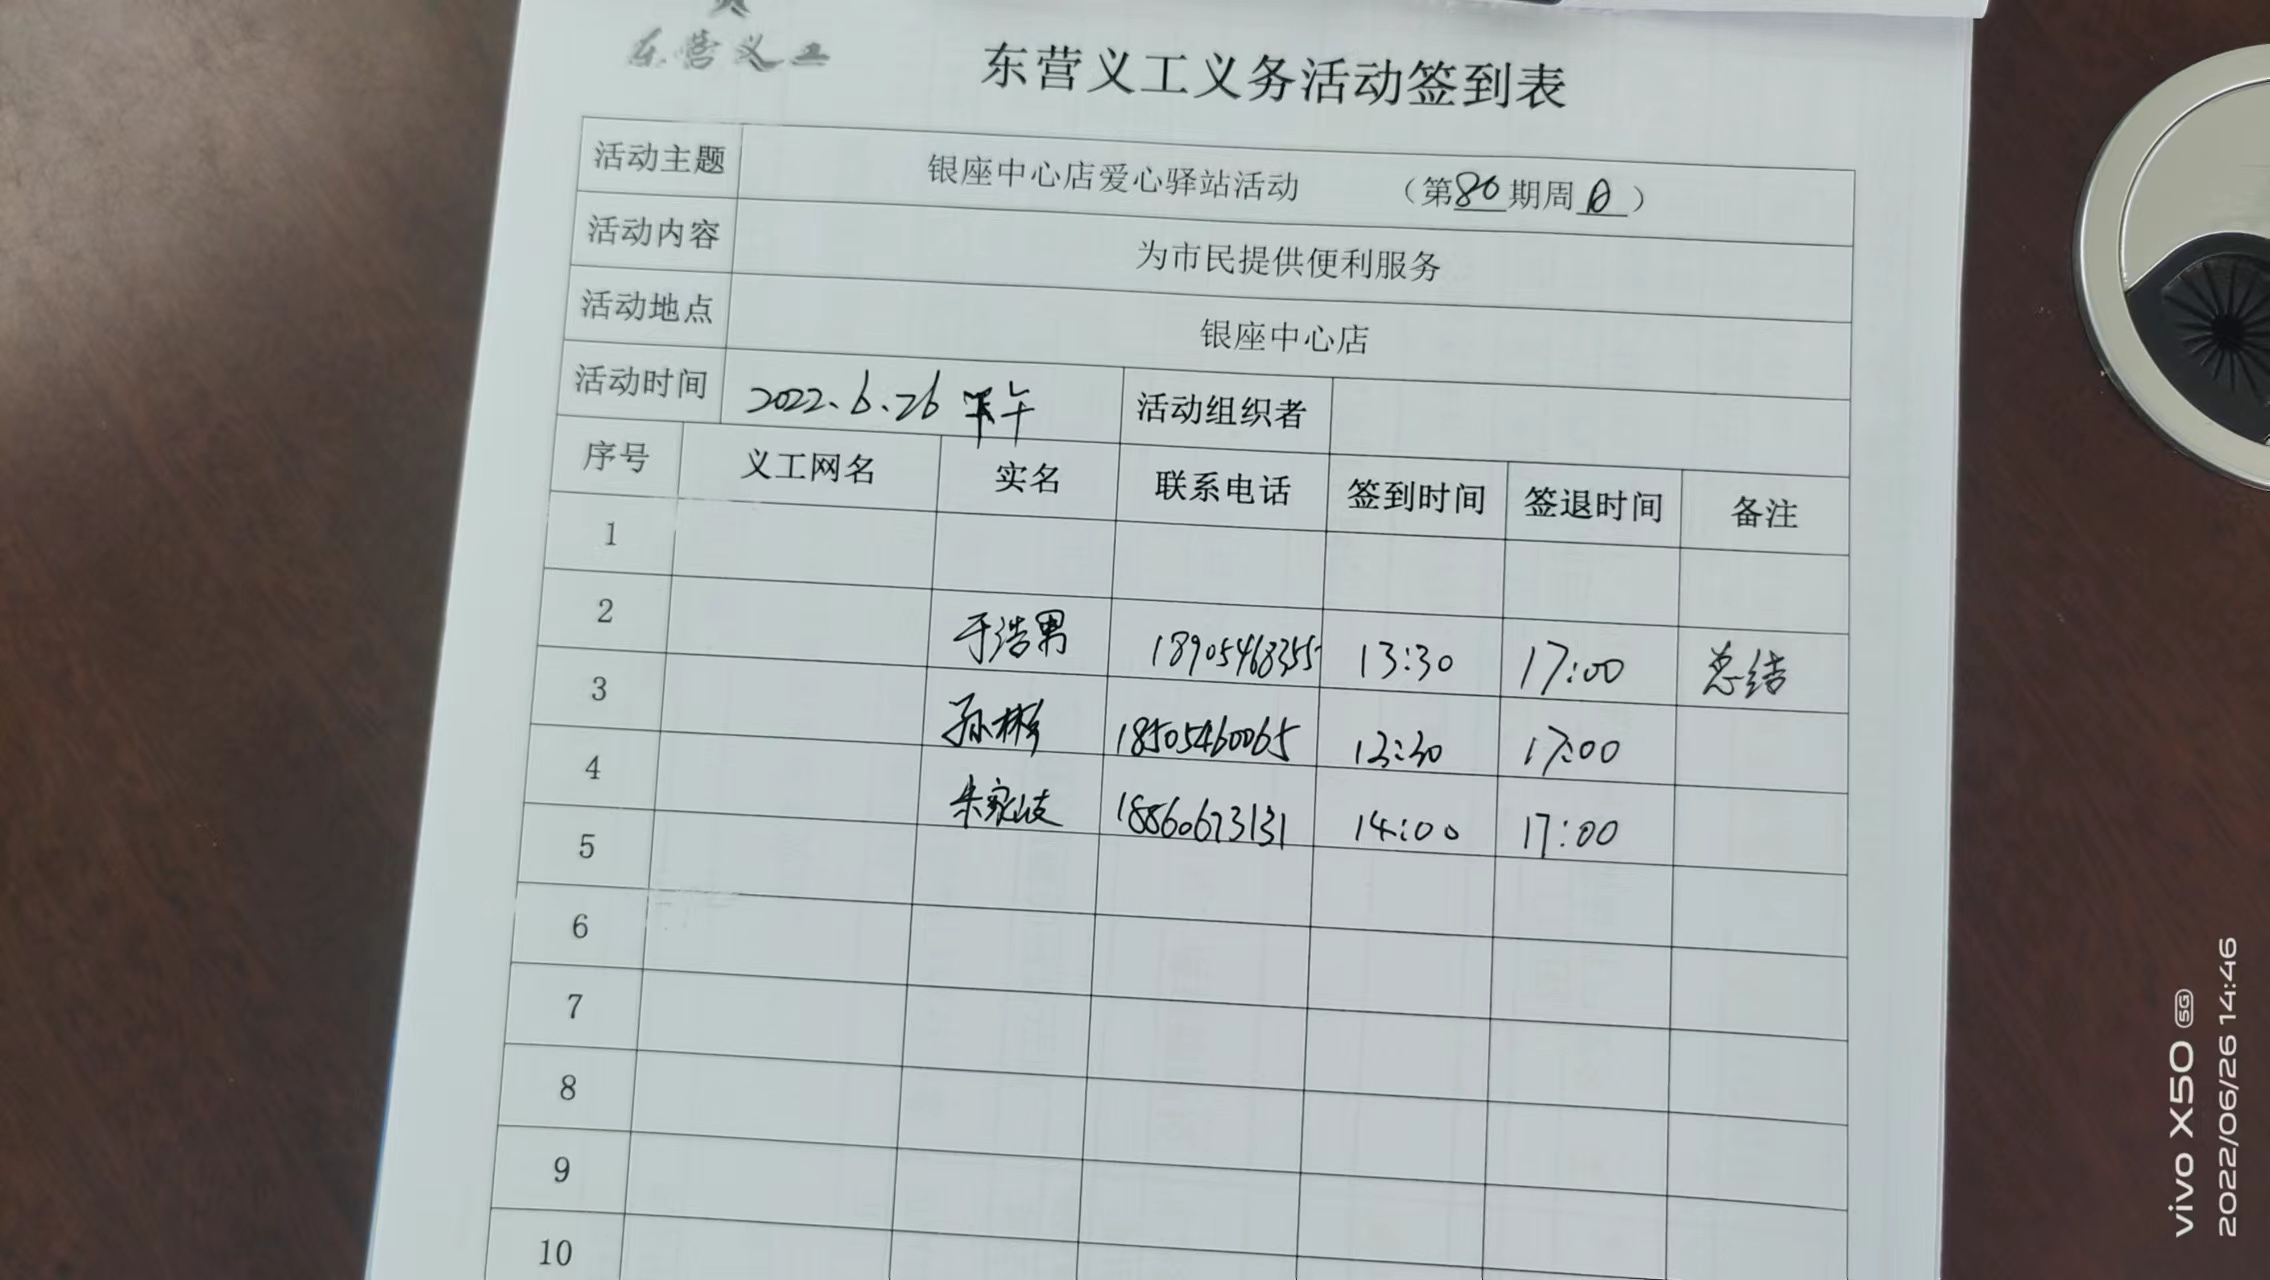 东营义工
东营义工义务活动签到表
活动主题 银座中心店爱心驿站活动 （第80期周日）
活动内容 为市民提供便利服务
活动地点 银座中心店
活动时间 2022.6.26 下午 活动组织者
序号 义工网名 实名 联系电话 签到时间 签退时间 备注
1
2 于浩男 18905468355 13:30 17:00 总结
3 孙彬 18505460065 13:30 17:00
4 朱家岐 18860673131 14:00 17:00
5
6
7
8
9
10
vivo X50 5G
2022/06/26 14:46